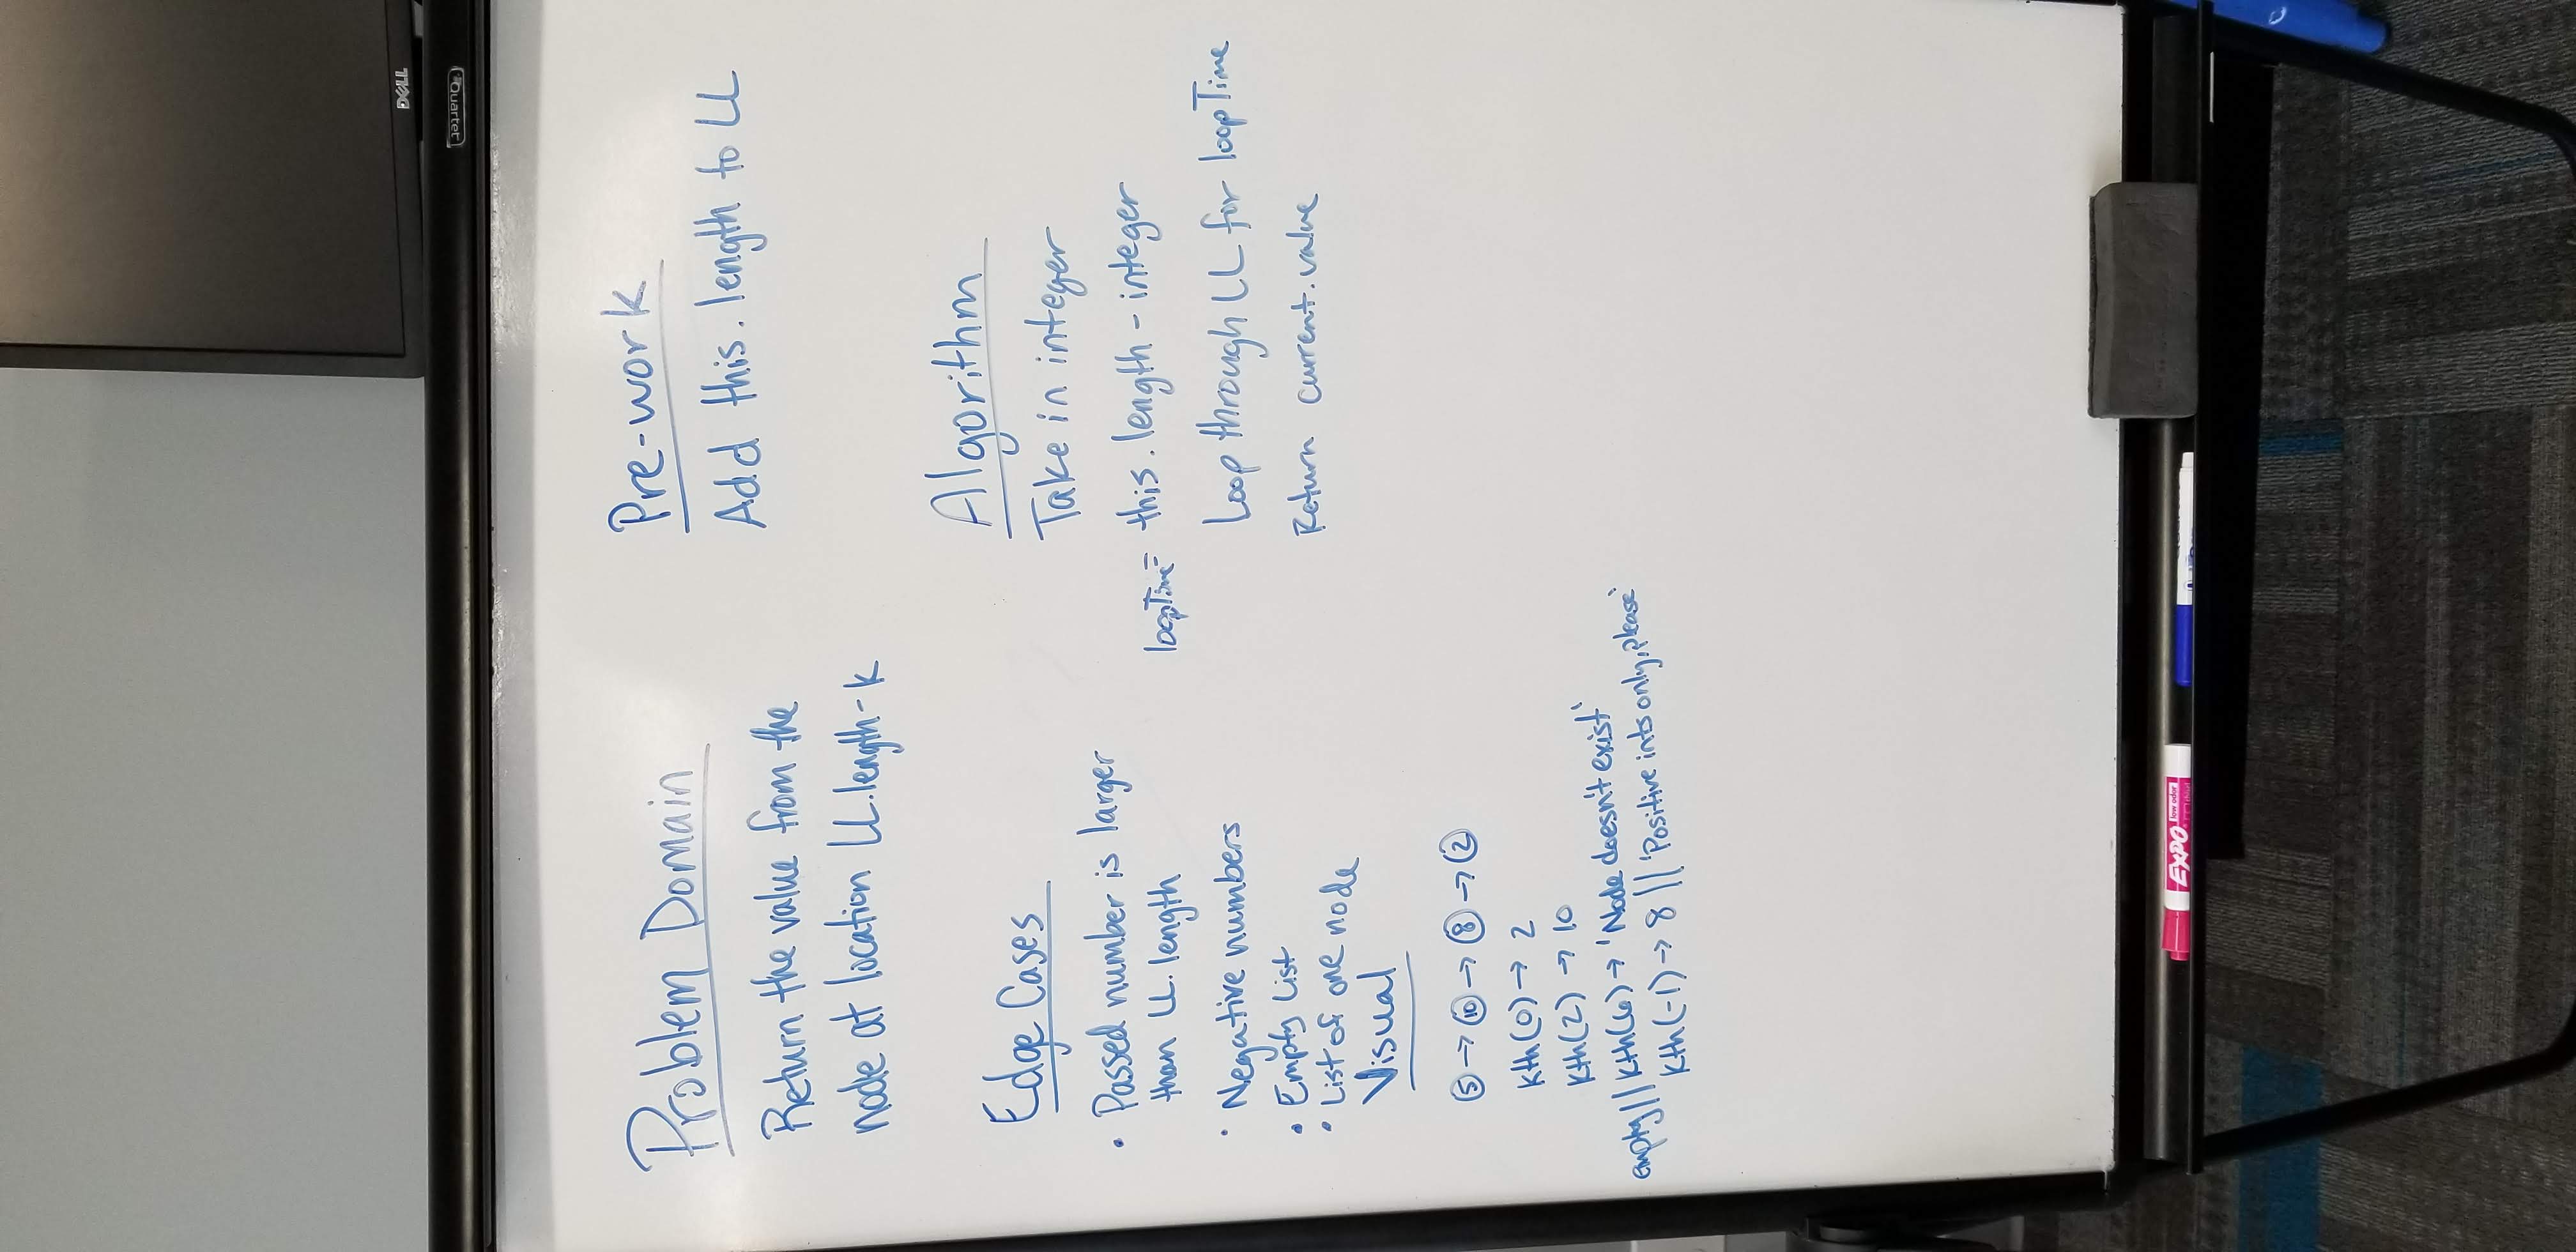 DELL
Quartet
Problem Domain
Return the value from the
node at location LL.length-k
Edge Cases
• Passed number is larger
than LL.length
• Negative numbers
• Empty List
• List of one node
Visual
5 → 10 → 8 → 2
kth(0) → 2
kth(2) → 10
empty || kth(6) → 'Node doesn't exist'
kth(-1) → 8 || 'Positive ints only, please'
Pre-work
Add this.length to LL
Algorithm
Take in integer
loopTime = this.length - integer
Loop through LL for loopTime
Return current.value
EXPO low odor